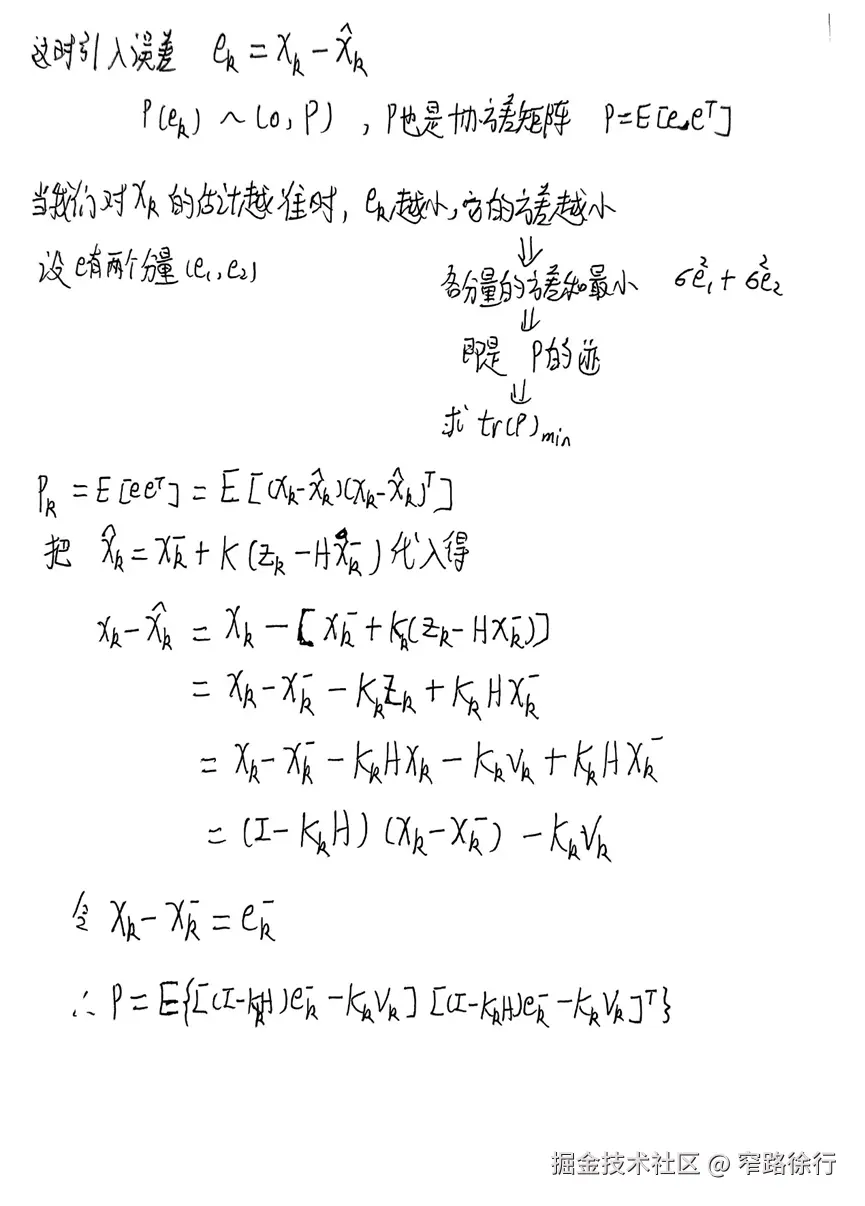 这时引入误差 e_k = x_k - x̂_k
P(e_k) ~ (0, P) , P也是协方差矩阵 P=E[e.e^T]
当我们对x_k的估计越准时, e_k越小, 它的方差越小
设e有两个分量(e₁,e₂)
⇓
各分量的方差和最小 σ²e₁ + σ²e₂
⇓
即是 P的迹
⇓
求 tr(P)min
P_k = E[ee^T] = E[(x_k-x̂_k)(x_k-x̂_k)^T]
把 x̂_k = x_k^- + K(z_k - Hx_k^-)代入得
x_k - x̂_k = x_k - [x_k^- + K_k(z_k - Hx_k^-)]
= x_k - x_k^- - K_kz_k + K_kHx_k^-
= x_k - x_k^- - K_kHx_k - K_kv_k + K_kHx_k^-
= (I - K_kH)(x_k - x_k^-) - K_kv_k
令 x_k - x_k^- = e_k^-
∴ P = E{[(I-K_kH)e_k^- - K_kv_k][(I-K_kH)e_k^- - K_kv_k]^T}
掘金技术社区 @ 窄路徐行